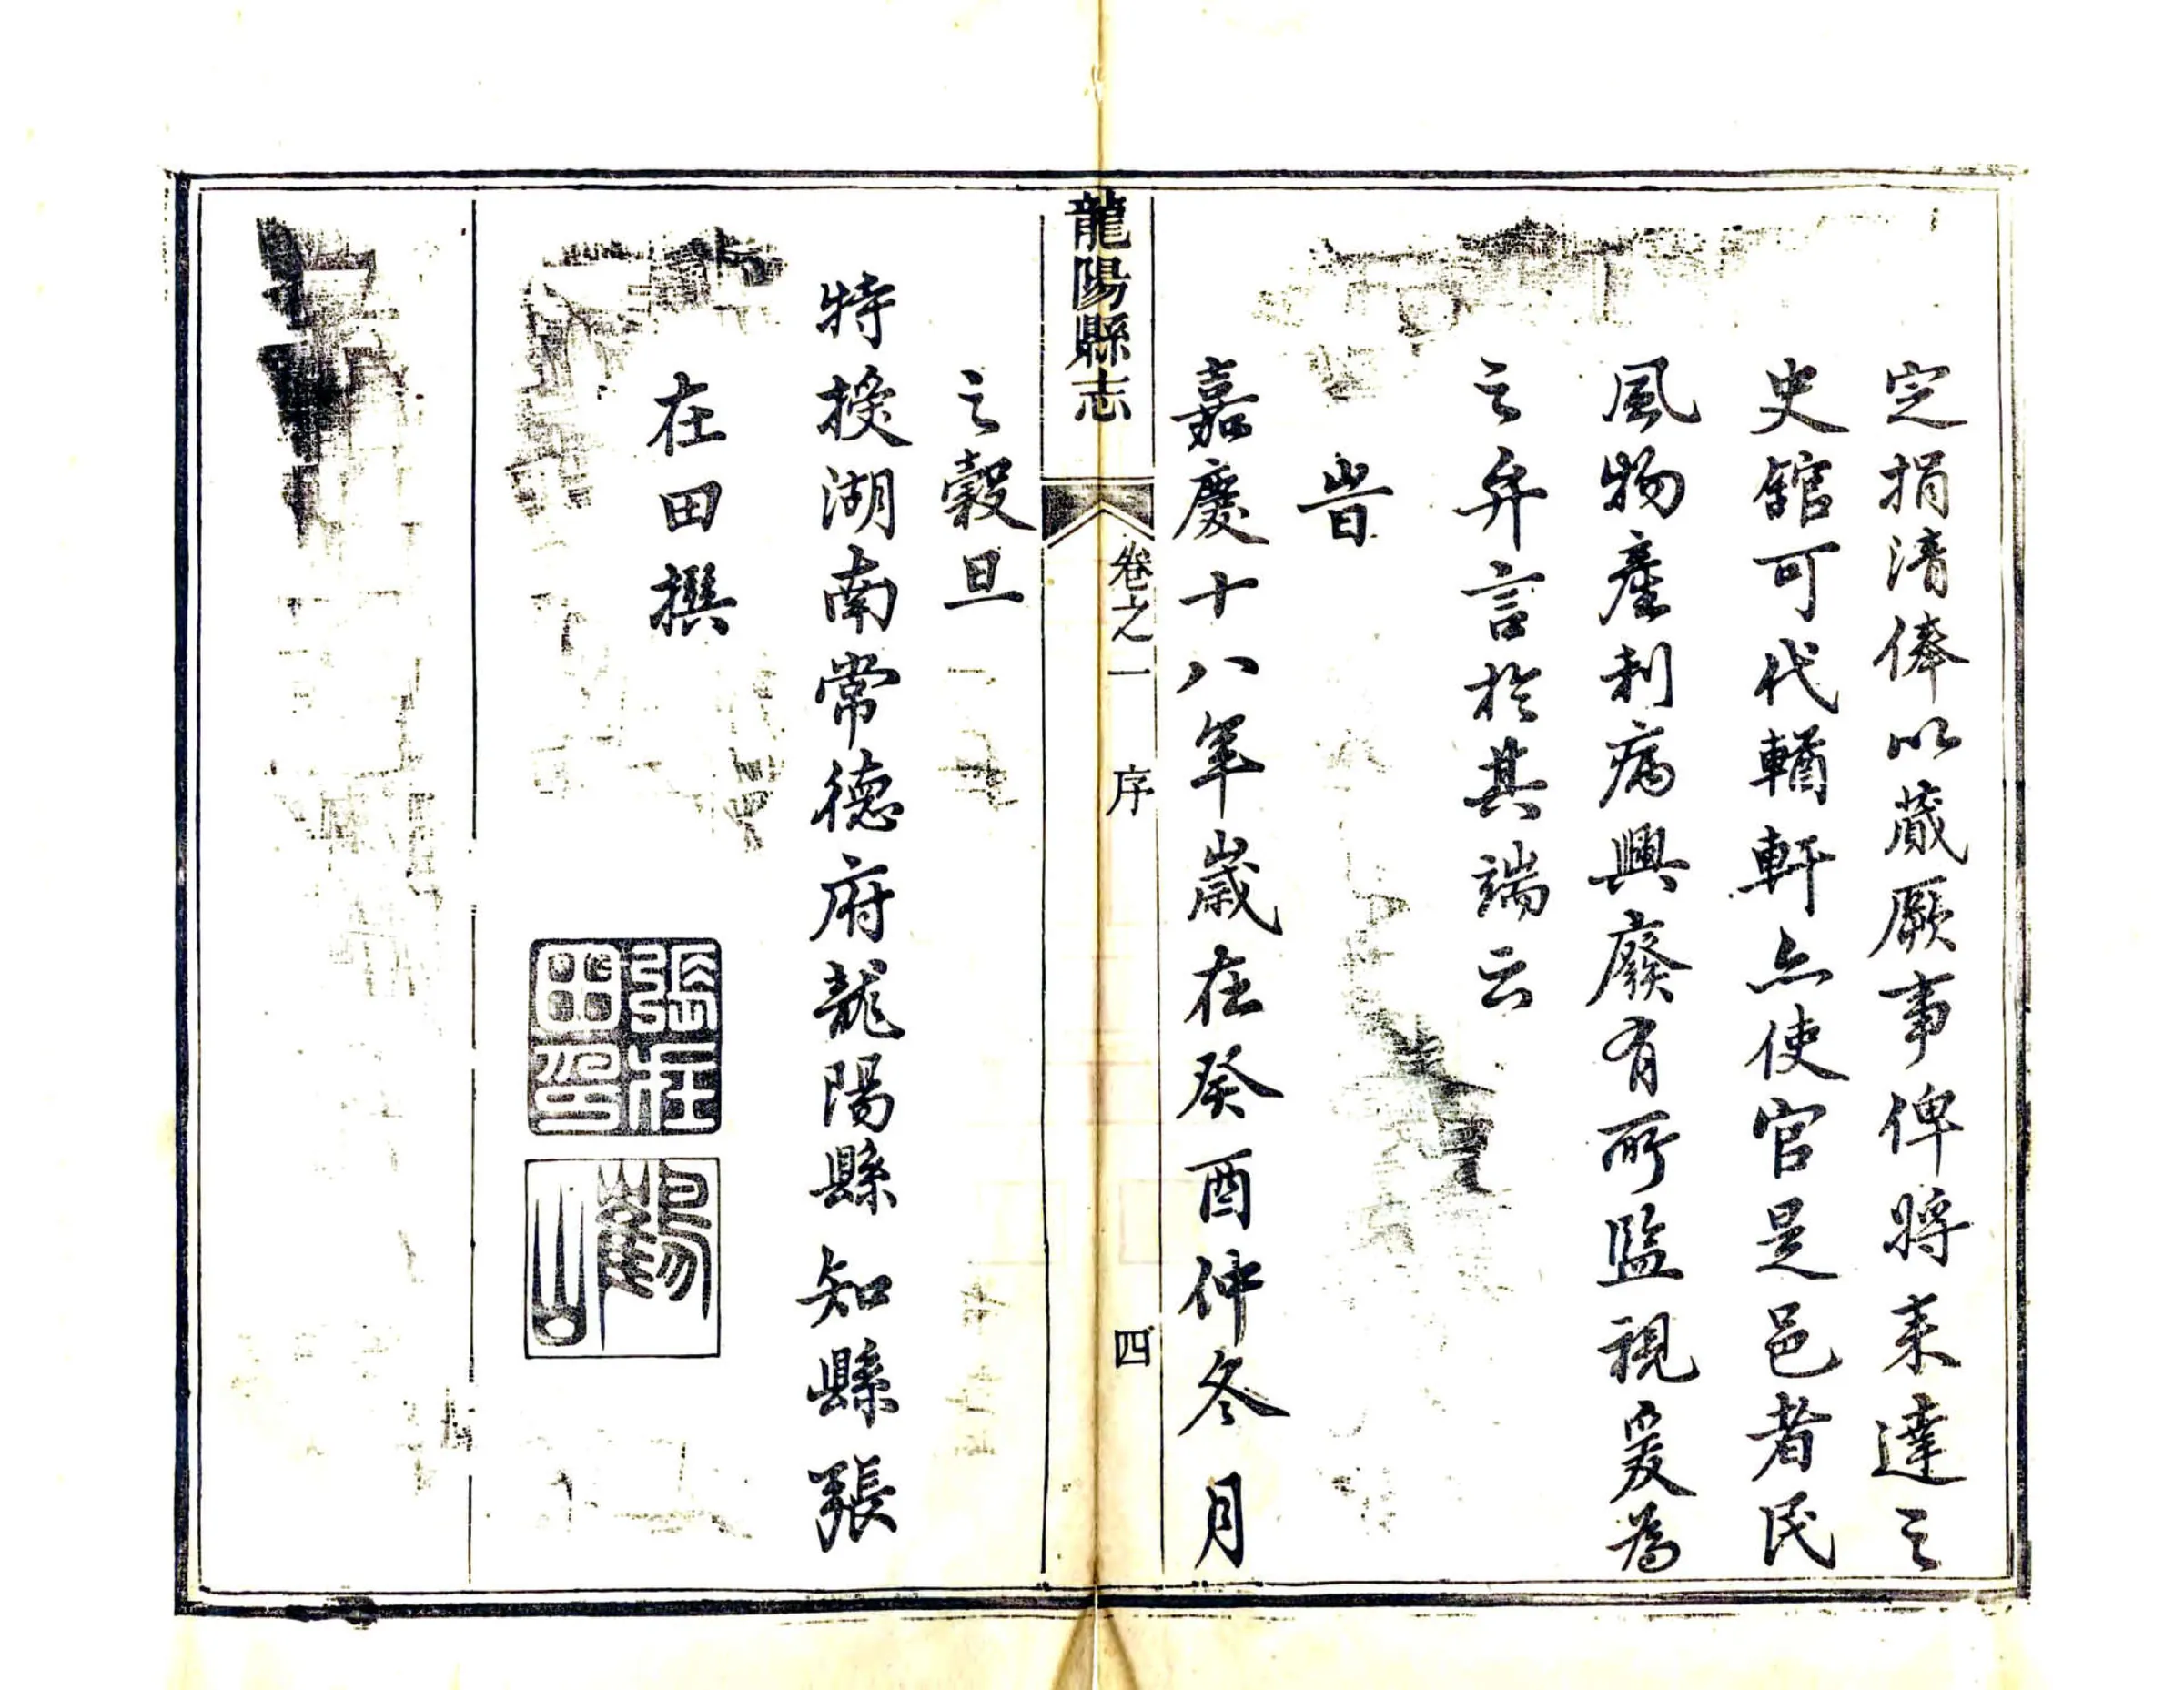 定捐清俸以蕆厥事俾將來達之
史館可代輶軒亦使官是邑者民
風物產利病興廢有所監視爰為
之弁言於其端云
旹
嘉慶十八年歲在癸酉仲冬月
龍陽縣志 卷之一 序 四
之穀旦
特授湖南常德府龍陽縣知縣張
在田撰
張在田印